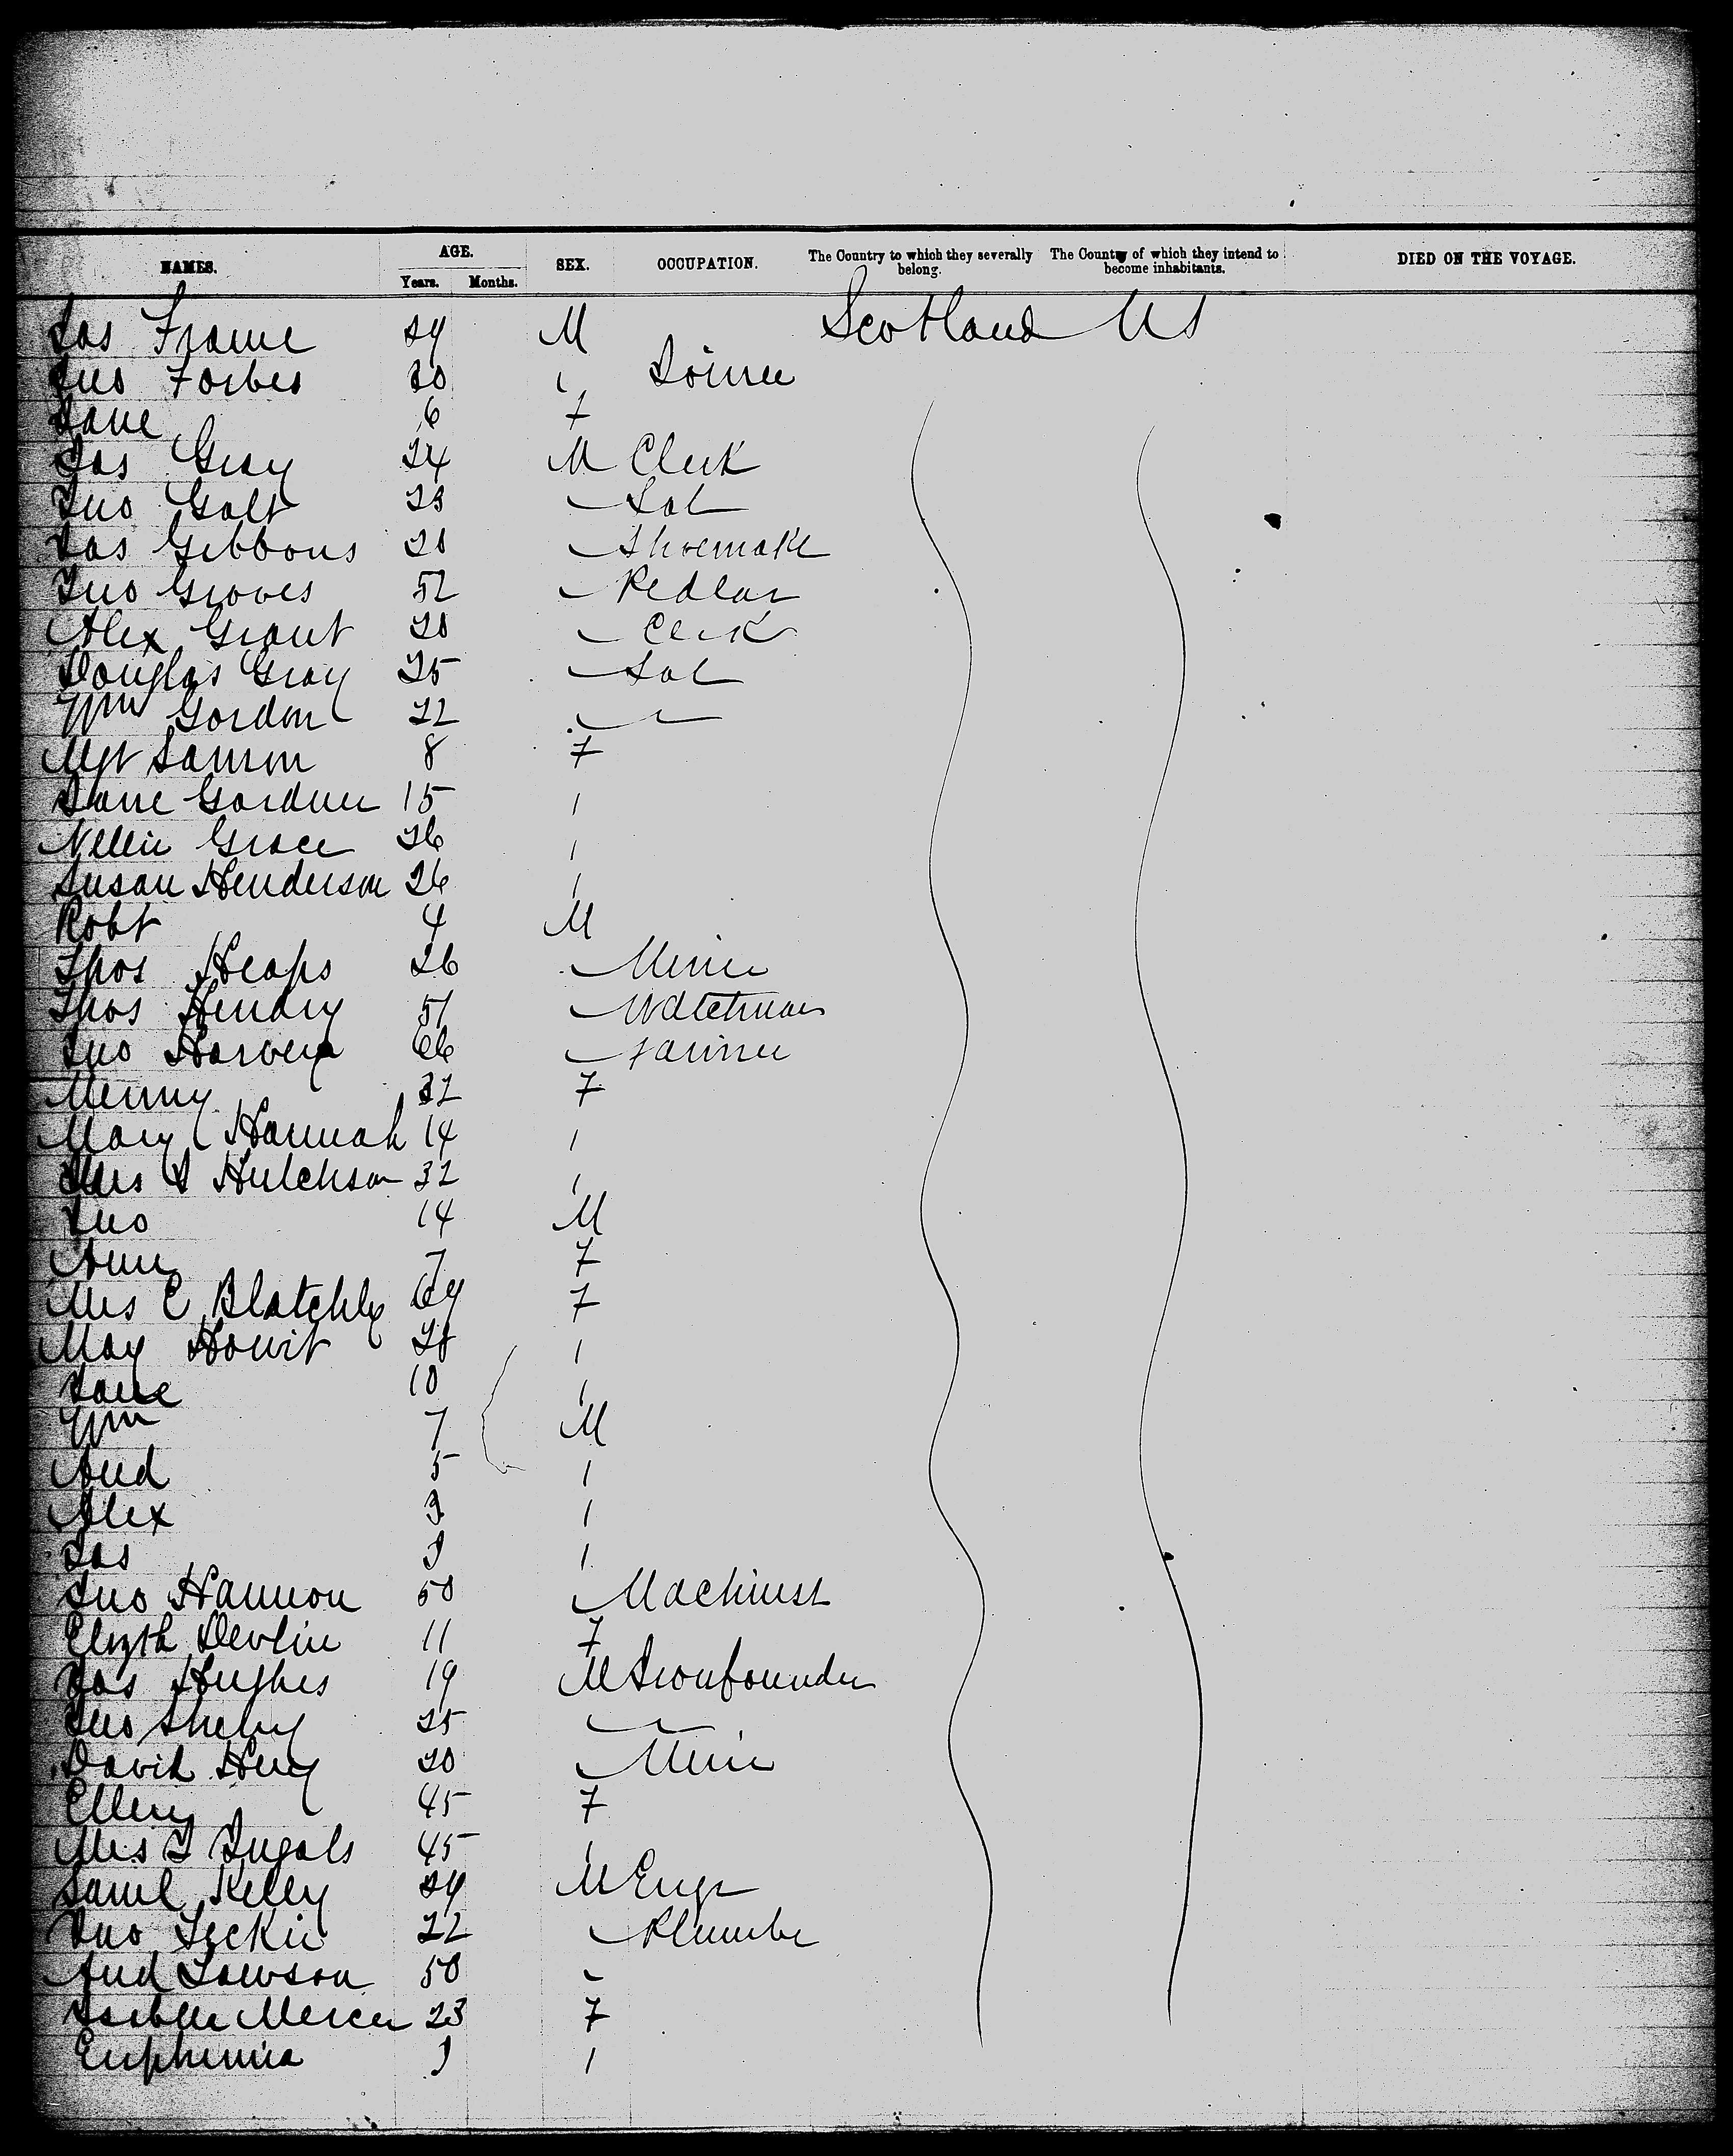 NAMES. AGE. Years. Months. SEX. OCCUPATION. The Country to which they severally belong. The Country of which they intend to become inhabitants. DIED ON THE VOYAGE.
Jas Frame 24 M Scotland US
Jno Forbes 30 Joiner
Jane 6 F
Jas Gray 24 M Clerk
Jno Galt 23 Lab
Jas Gibbons 28 Shoemake
Jno Groves 52 Pedlar
Alex Grant 20 Clerk
Douglas Gray 25 Lab
Wm Gordon 22
Mgt 8 F
Jane Gardner 15
Nellie Grace 26
Susan Henderson 26
Robt 4 M
Thos Heaps 26 Miner
Thos Hendry 51 Watchman
Jno Harvey 66 Farmer
32 F
Mary Hannah 14
Mrs J Hutchson 32
Jno 14 M
Ann 7 F
Mrs E Blatchly 64 F
May Howit 28
Jane 10
Wm 7 M
And 5
Alex 3
Jas
Jno Hannon 50 Machinist
Elizth Devlin 11 F
Jas Hughes 19 M Ironfounder
Jno 25
David 20 Miner
Ellen 45 F
Mrs J Ingals 45
Saml Kelly 24 M Engr
Jno Leckie 22 Plumber
And Lawson 50
Isabelle Mercer 23 F
Euphemia